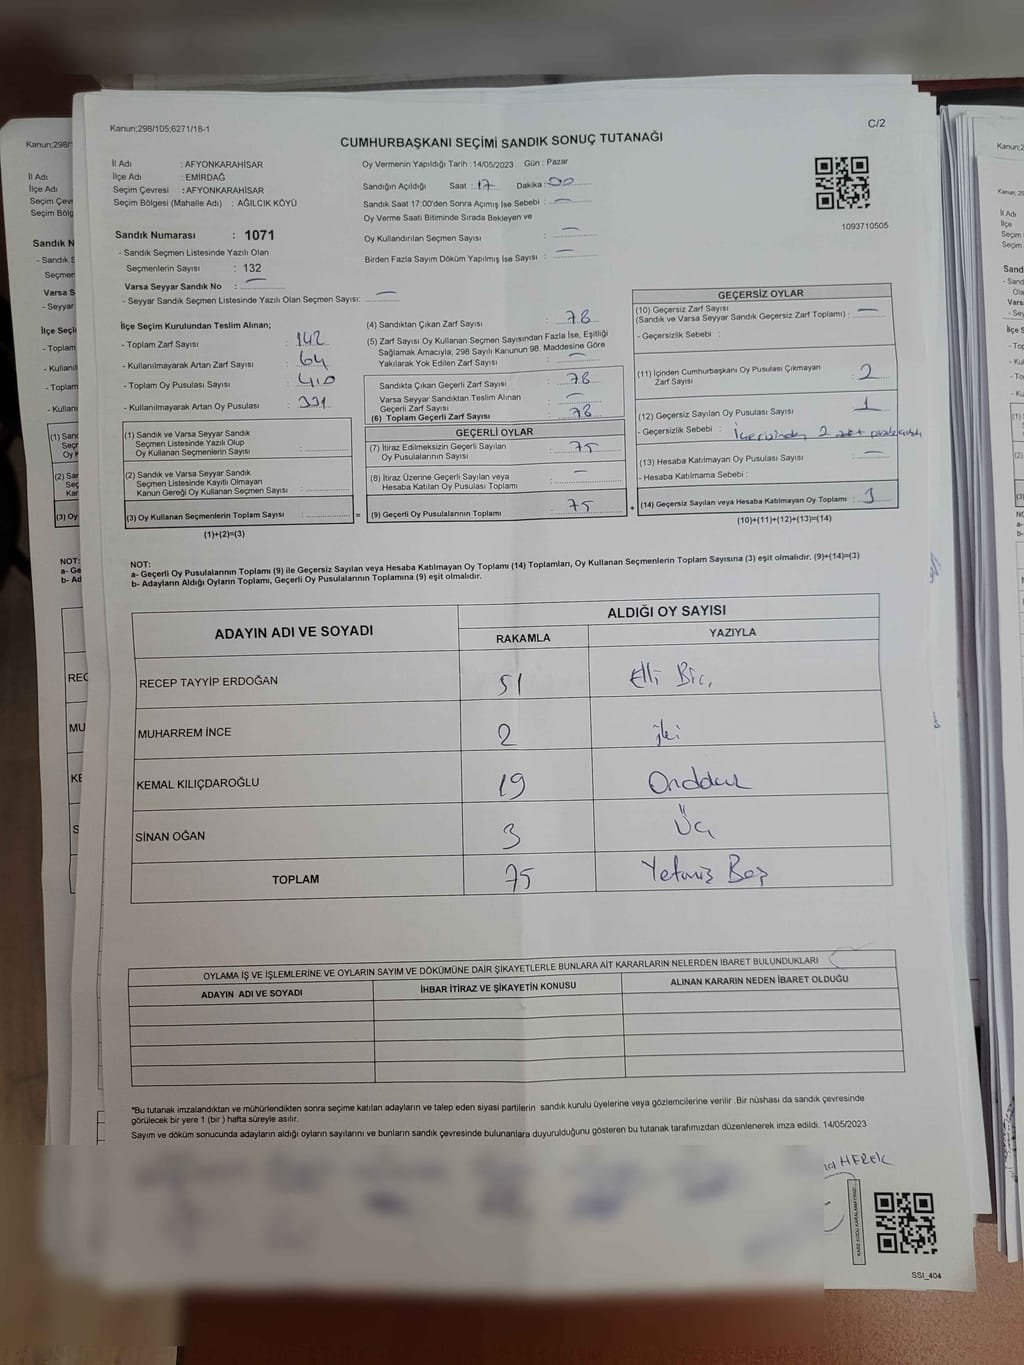 Kanun;298/105;6271/18-1
C/2
CUMHURBAŞKANI SEÇİMİ SANDIK SONUÇ TUTANAĞI
İl Adı : AFYONKARAHİSAR
İlçe Adı : EMİRDAĞ
Seçim Çevresi : AFYONKARAHİSAR
Seçim Bölgesi (Mahalle Adı) : AĞILCIK KÖYÜ
Oy Vermenin Yapıldığı Tarih : 14/05/2023 Gün : Pazar
Sandığın Açıldığı Saat : 17 Dakika : 00
Sandık Saat 17:00'den Sonra Açımış İse Sebebi : —
Oy Verme Saati Bitiminde Sırada Bekleyen ve
Oy Kullandırılan Seçmen Sayısı : —
Birden Fazla Sayım Döküm Yapılmış İse Sayısı : —
1093710505
Sandık Numarası : 1071
- Sandık Seçmen Listesinde Yazılı Olan
Seçmenlerin Sayısı : 132
Varsa Seyyar Sandık No : —
- Seyyar Sandık Seçmen Listesinde Yazılı Olan Seçmen Sayısı: —
İlçe Seçim Kurulundan Teslim Alınan;
- Toplam Zarf Sayısı : 142
- Kullanılmayarak Artan Zarf Sayısı : 64
- Toplam Oy Pusulası Sayısı : 410
- Kullanılmayarak Artan Oy Pusulası : 331
(1) Sandık ve Varsa Seyyar Sandık
Seçmen Listesinde Yazılı Olup
Oy Kullanan Seçmenlerin Sayısı :
(2) Sandık ve Varsa Seyyar Sandık
Seçmen Listesinde Kayıtlı Olmayan
Kanun Gereği Oy Kullanan Seçmen Sayısı :
(3) Oy Kullanan Seçmenlerin Toplam Sayısı :
(1)+(2)=(3)
(4) Sandıktan Çıkan Zarf Sayısı : 78
(5) Zarf Sayısı Oy Kullanan Seçmen Sayısından Fazla İse, Eşitliği
Sağlamak Amacıyla, 298 Sayılı Kanunun 98. Maddesine Göre
Yakılarak Yok Edilen Zarf Sayısı : —
Sandıkta Çıkan Geçerli Zarf Sayısı : 78
Varsa Seyyar Sandıktan Teslim Alınan
Geçerli Zarf Sayısı : —
(6) Toplam Geçerli Zarf Sayısı : 78
GEÇERLİ OYLAR
(7) İtiraz Edilmeksizin Geçerli Sayılan
Oy Pusulalarının Sayısı : 75
(8) İtiraz Üzerine Geçerli Sayılan veya
Hesaba Katılan Oy Pusulası Toplamı : —
= (9) Geçerli Oy Pusulalarının Toplamı : 75
GEÇERSİZ OYLAR
(10) Geçersiz Zarf Sayısı
(Sandık ve Varsa Seyyar Sandık Geçersiz Zarf Toplamı) : —
- Geçersizlik Sebebi :
(11) İçinden Cumhurbaşkanı Oy Pusulası Çıkmayan
Zarf Sayısı : 2
(12) Geçersiz Sayılan Oy Pusulası Sayısı : 1
- Geçersizlik Sebebi : İçerisinden 2 adet
(13) Hesaba Katılmayan Oy Pusulası Sayısı : —
- Hesaba Katılmama Sebebi :
+ (14) Geçersiz Sayılan veya Hesaba Katılmayan Oy Toplamı : 3
(10)+(11)+(12)+(13)=(14)
NOT:
a- Geçerli Oy Pusulalarının Toplamı (9) ile Geçersiz Sayılan veya Hesaba Katılmayan Oy Toplamı (14) Toplamları, Oy Kullanan Seçmenlerin Toplam Sayısına (3) eşit olmalıdır. (9)+(14)=(3)
b- Adayların Aldığı Oyların Toplamı, Geçerli Oy Pusulalarının Toplamına (9) eşit olmalıdır.
ADAYIN ADI VE SOYADI
ALDIĞI OY SAYISI
RAKAMLA YAZIYLA
RECEP TAYYİP ERDOĞAN 51 Elli Bir
MUHARREM İNCE 2 iki
KEMAL KILIÇDAROĞLU 19 Ondokuz
SİNAN OĞAN 3 Üç
TOPLAM 75 Yetmiş Beş
OYLAMA İŞ VE İŞLEMLERİNE VE OYLARIN SAYIM VE DÖKÜMÜNE DAİR ŞİKAYETLERLE BUNLARA AİT KARARLARIN NELERDEN İBARET BULUNDUKLARI
ADAYIN ADI VE SOYADI İHBAR İTİRAZ VE ŞİKAYETİN KONUSU ALINAN KARARIN NEDEN İBARET OLDUĞU
*Bu tutanak imzalandıktan ve mühürlendikten sonra seçime katılan adayların ve talep eden siyasi partilerin sandık kurulu üyelerine veya gözlemcilerine verilir .Bir nüshası da sandık çevresinde
görülecek bir yere 1 (bir ) hafta süreyle asılır.
Sayım ve döküm sonucunda adayların aldığı oyların sayılarını ve bunların sandık çevresinde bulunanlara duyurulduğunu gösteren bu tutanak tarafımızdan düzenlenerek imza edildi. 14/05/2023
HEREK
KARE KODU KARALAMAYINIZ!
SSI_404